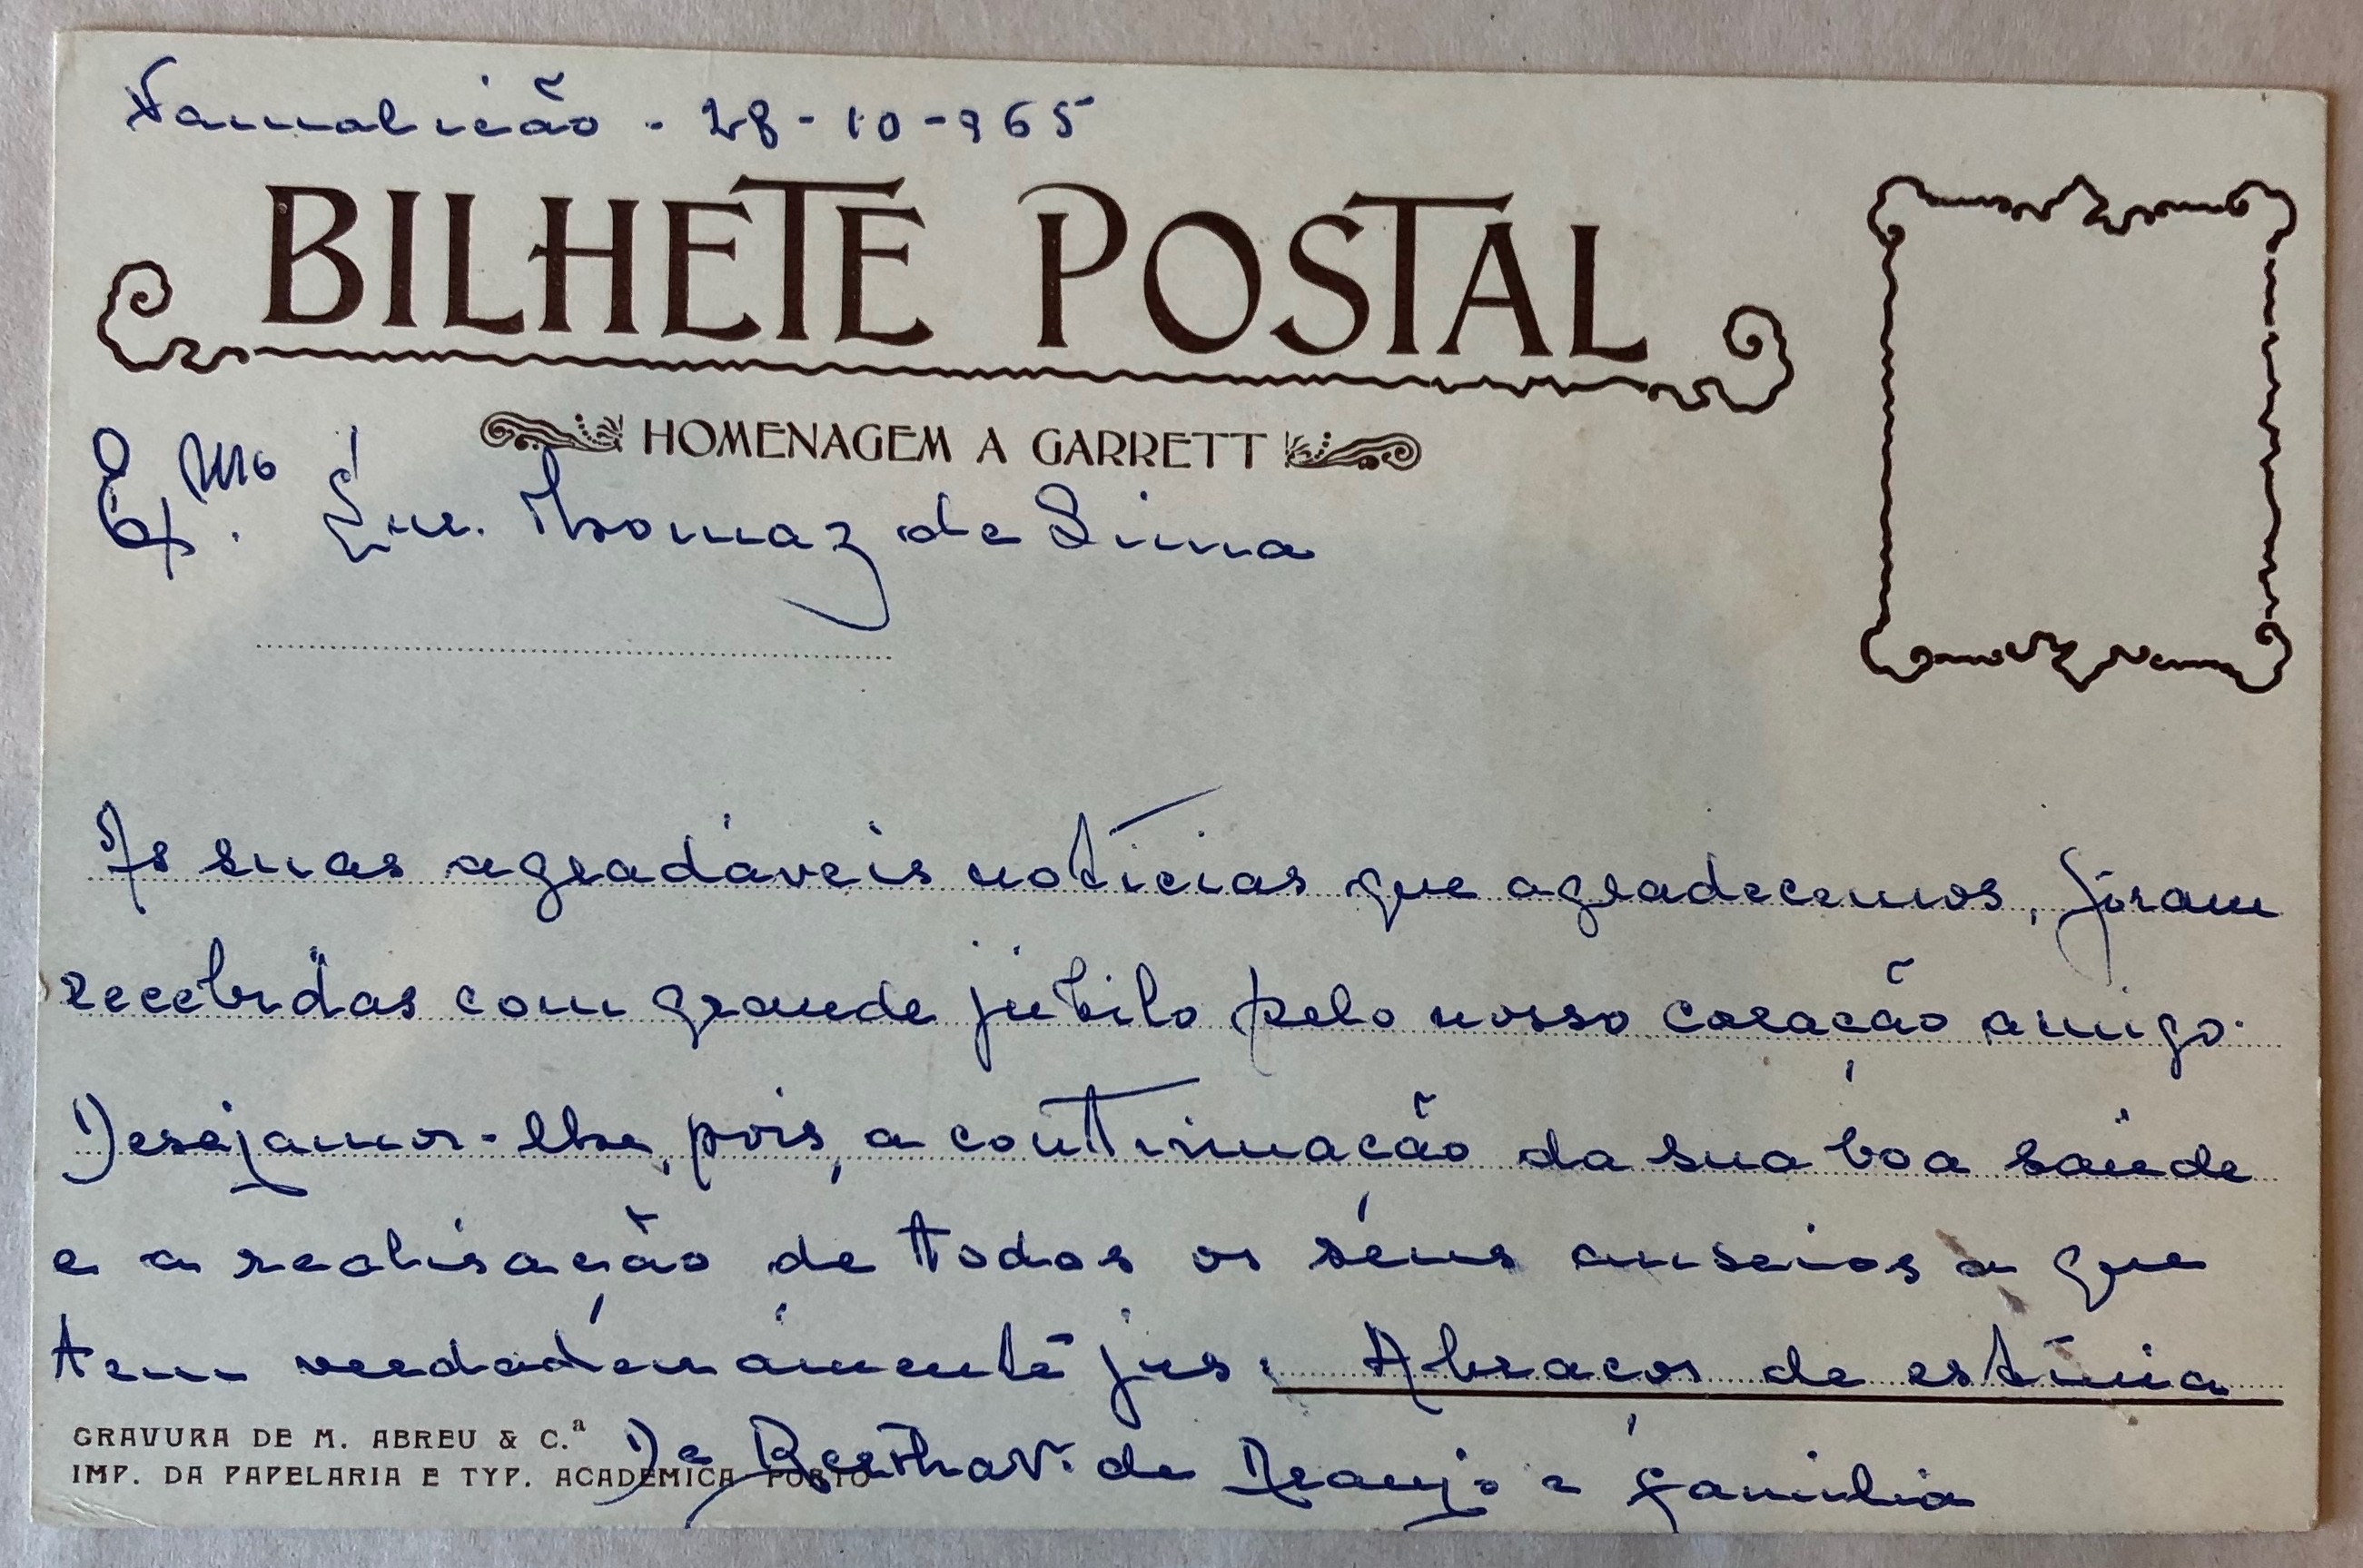 Famalicão - 28-10-965
BILHETE POSTAL
HOMENAGEM A GARRETT
Ex.mo Snr. Thomaz de Lima
As suas agradáveis notícias que agradecemos, fôram
recebidas com grande júbilo pelo nosso coração amigo.
Desejamos-lhe, pois, a continuação da sua boa saúde
e a realisação de todos os séus anseios a que
tem verdadeiramente jus. Abraços de estima
De Bertha V. de Araujo e família
GRAVURA DE M. ABREU & C.ª
IMP. DA PAPELARIA E TYP. ACADEMICA PORTO